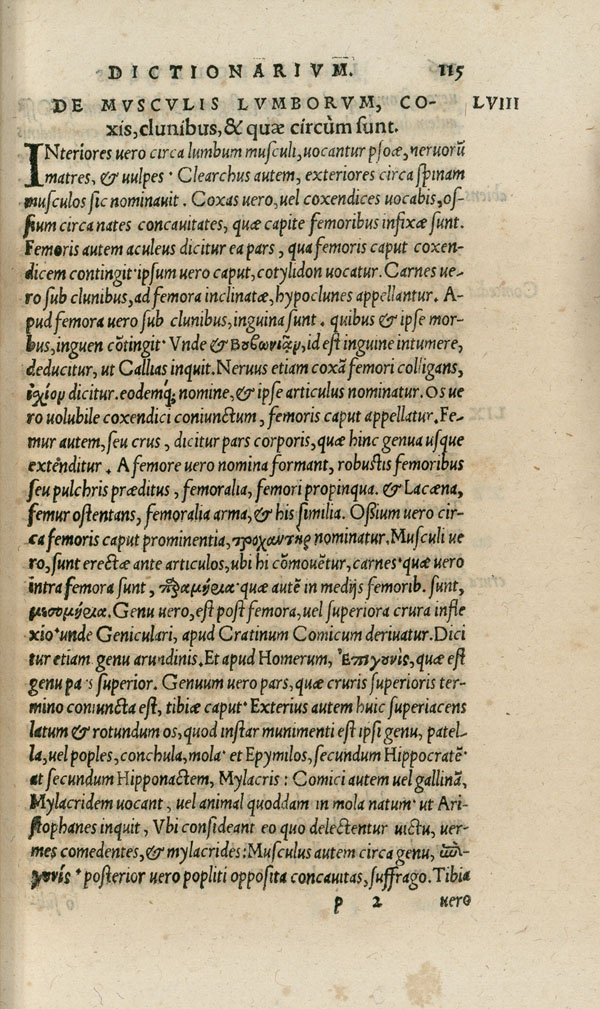 DICTIONARIVM. 115
DE MVSCVLIS LVMBORVM, CO- LVIII
xis, clunibus, & quæ circùm sunt.
INteriores uero circa lumbum musculi, uocantur psoæ, neruorũ
matres, & uulpes · Clearchus autem, exteriores circa spinam
musculos sic nominauit . Coxas uero, uel coxendices uocabis, os-
sium circa nates concauitates, quæ capite femoribus infixæ sunt.
Femoris autem aculeus dicitur ea pars , qua femoris caput coxen-
dicem contingit· ipsum uero caput, cotylidon uocatur. Carnes ue-
ro sub clunibus, ad femora inclinatæ, hypoclunes appellantur . A-
pud femora uero sub clunibus, inguina sunt . quibus & ipse mor-
bus, inguen cõtingit· Vnde & βουβωνιᾷν, id est inguine intumere,
deducitur, ut Callias inquit. Neruus etiam coxã femori colligans,
ἰχίον dicitur. eodemq; nomine, & ipse articulus nominatur. Os ue
ro uolubile coxendici coniunctum , femoris caput appellatur. Fe-
mur autem, seu crus , dicitur pars corporis, quæ hinc genua usque
extẽnditur . A femore uero nomina formant, robustis femoribus
seu pulchris præditus , femoralia, femori propinqua. & Lacæna,
femur ostentans, femoralia arma, & his similia. Ossium uero cir-
ca femoris caput prominentia, τροχαντὴρ nominatur. Musculi ue
ro, sunt erectæ ante articulos, ubi hi cõmouẽtur, carnes· quæ uero
intra femora sunt , παραμήρια· quæ autẽ in medijs femorib. sunt,
μεσομήρια. Genu uero, est post femora, uel superiora crura infle
xio· unde Geniculari, apud Cratinum Comicum deriuatur. Dici
tur etiam genu arundinis. Et apud Homerum, Ἐπιγουνὶς, quæ est
genu pars superior. Genuum uero pars, quæ cruris superioris ter-
mino coniuncta est, tibiæ caput· Exterius autem huic superiacens
latum & rotundum os, quod instar munimenti est ipsi genu, patel-
la, uel poples, conchula, mola· et Epymilos, secundum Hippocratẽ·
at secundum Hipponactem, Mylacris : Comici autem uel gallinã,
Mylacridem uocant , uel animal quoddam in mola natum· ut Ari-
stophanes inquit , Vbi consideant eo quo delectentur uictu, uer-
mes comedentes, & mylacrides: Musculus autem circa genu, ἐπι-
γουνίς · posterior uero popliti opposita concauitas, suffrago. Tibia
p 2 uero